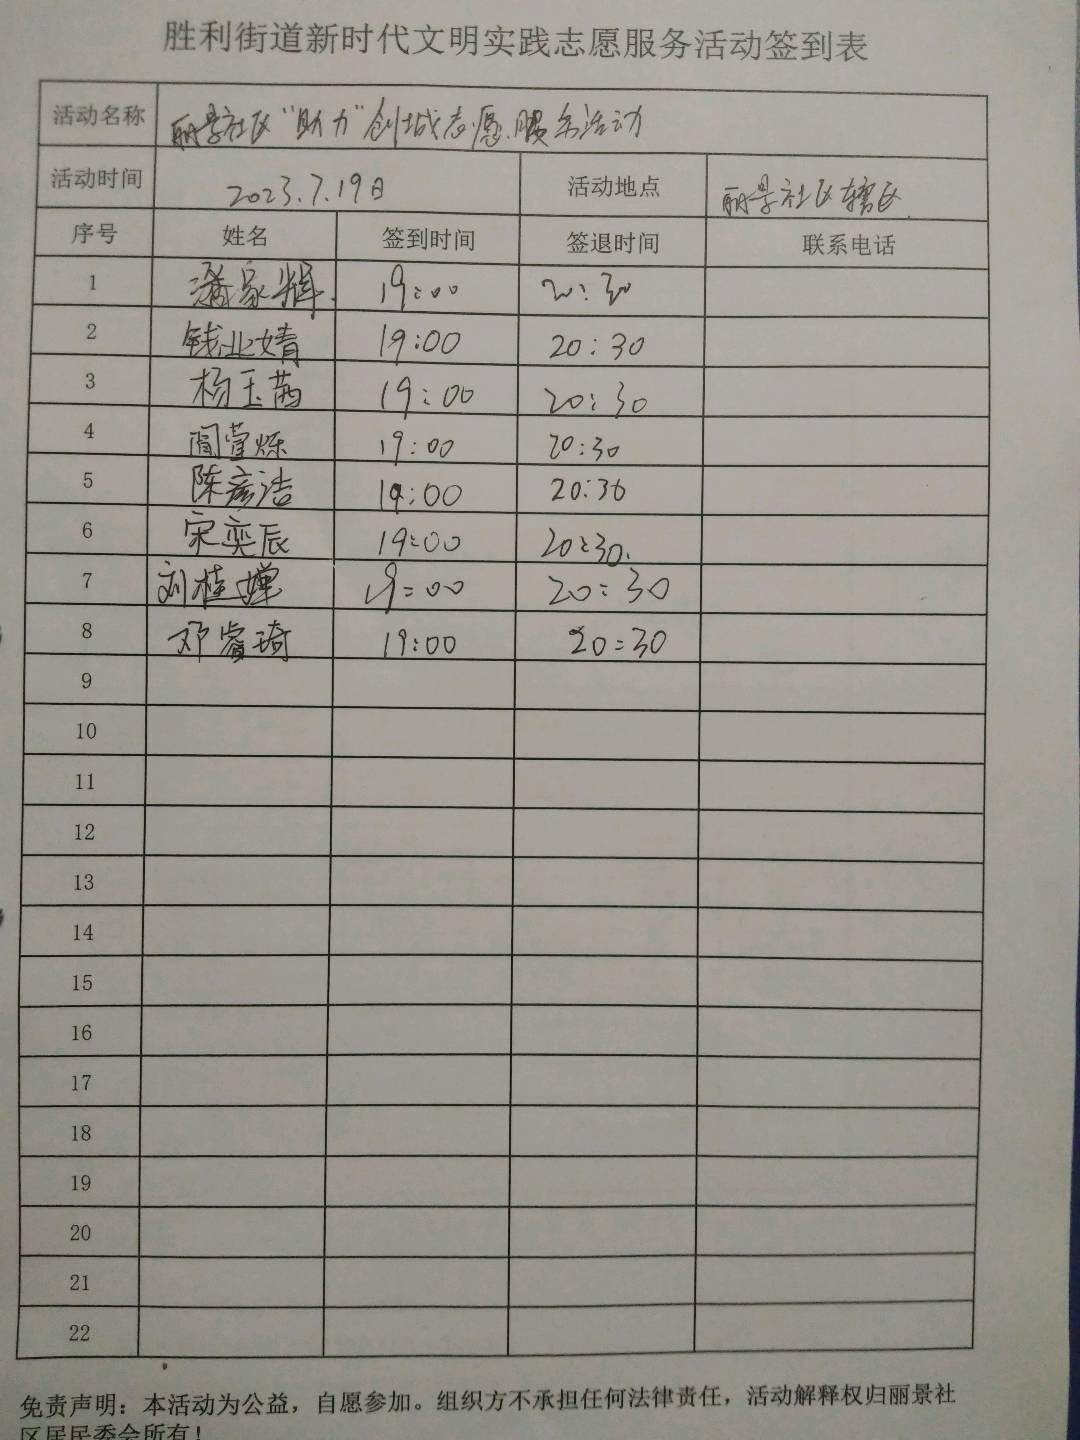 胜利街道新时代文明实践志愿服务活动签到表
活动名称 丽景社区“助力”创城志愿服务活动
活动时间 2023.7.19日 活动地点 丽景社区辖区
序号 姓名 签到时间 签退时间 联系电话
1 潘家辉 19:00 20:30
2 钱业婧 19:00 20:30
3 杨玉茜 19:00 20:30
4 阎萱烁 19:00 20:30
5 陈彦洁 19:00 20:30
6 宋奕辰 19:00 20:30
7 刘桂婵 19:00 20:30
8 邓睿琦 19:00 20:30
9
10
11
12
13
14
15
16
17
18
19
20
21
22
免责声明：本活动为公益，自愿参加。组织方不承担任何法律责任，活动解释权归丽景社
区居民委会所有！